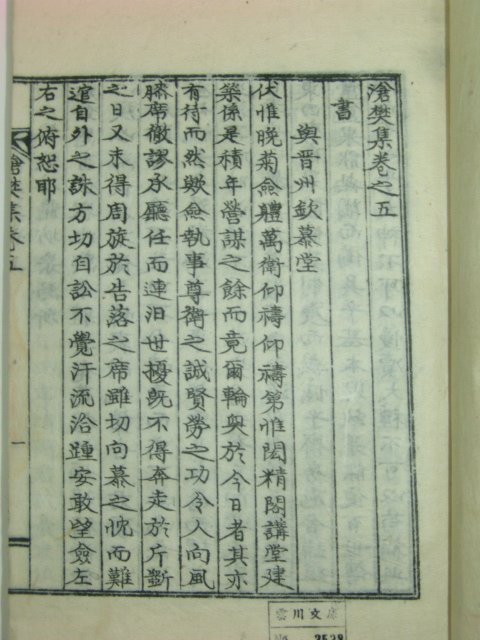 滄樊集卷之五
書
與晋州欽慕堂
伏惟晚菊僉體萬衛仰禱仰禱第惟閎精閣講堂建
築係是積年營謀之餘而竟爾輪奐於今日者其亦
有待而然歟僉執事尊衛之誠賢勞之功令人向風
膝席徹謬承廳任而連汨世擾旣不得奔走於斤斲
之日又未得周旋於告落之席雖切向慕之忱而難
逭自外之誅方切自訟不覺汗流洽踵安敢望僉左
右之俯恕耶
滄樊集卷五
一
雲川文庫
No. 2538